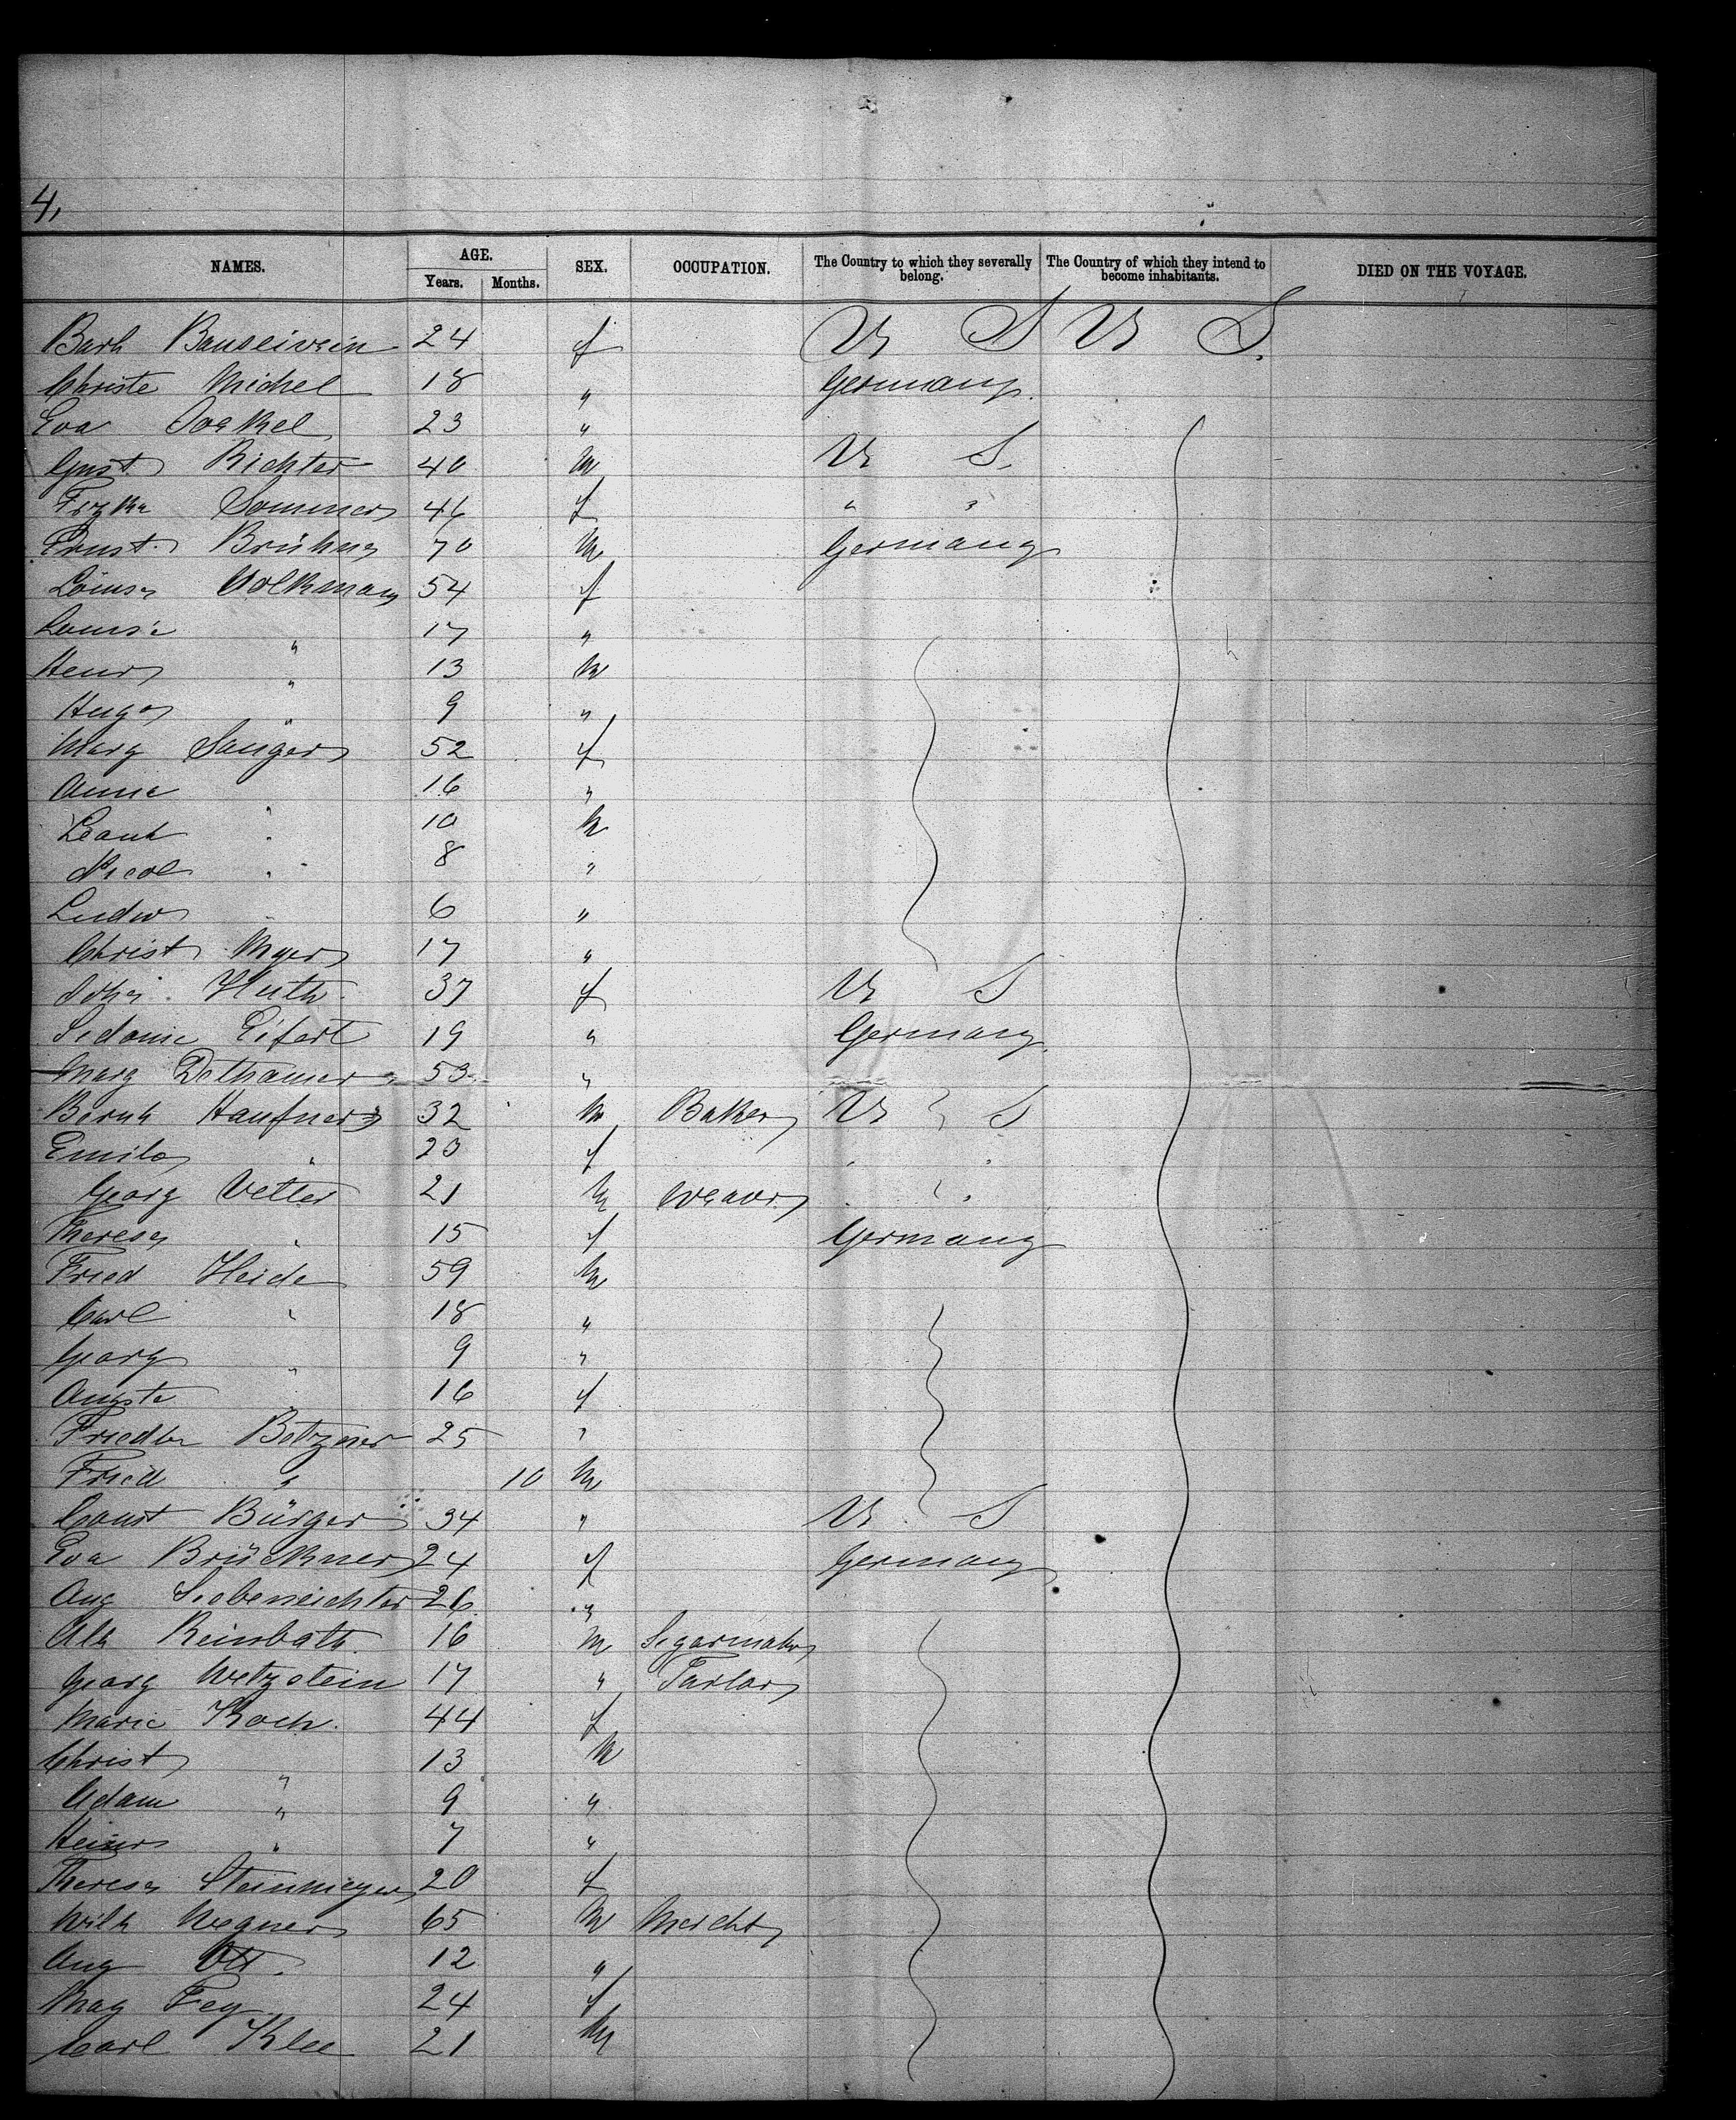 4,
NAMES. AGE. Years. Months. SEX. OCCUPATION. The Country to which they severally belong. The Country of which they intend to become inhabitants. DIED ON THE VOYAGE.
Barb 24 f U S U S.
Christe Michel 18 " Germany.
Eva 23 "
Gust. Richter 40 M U S.
Sommer 46 f " "
Ernst. Brühns 70 M Germany
Louise Volkmann 54 f
Louise " 17 "
Henr " 13 M
Hugo " 9 "
Marg Sanger 52 f
Anna " 16 "
Leonh " 10 M
Nicol " 8 "
Ludw " 6 "
Christ Myer 17 "
Huth. 37 f U S
Sidonie Eifert 19 " Germany.
Marg 53 "
Bernh Haufner 32 M Baker U S
Emile " 23 f " "
Georg Vetter 21 M Weaver " "
Therese " 15 f Germany
Fried Heide 59 M
Carl " 18 "
Georg " 9 "
Auguste " 16 f
Friedke Betzner 25 "
Fried " 10 M
Const Bürger 34 " U S
Eva Brückner 24 f Germany
Aug Siebeneichter 26 "
Alb Reinbath 16 M Segarmaker
Georg Wetzstein 17 " Tailor
Marie Koch. 44 f
Christ " 13 M
Adam " 9 "
Heinr " 7 "
Therese Steinmeyer 20 f
Wilh Wegner 65 M Mercht
Aug Ott. 12 "
Mag Fey 24 f
Carl Klee 21 M